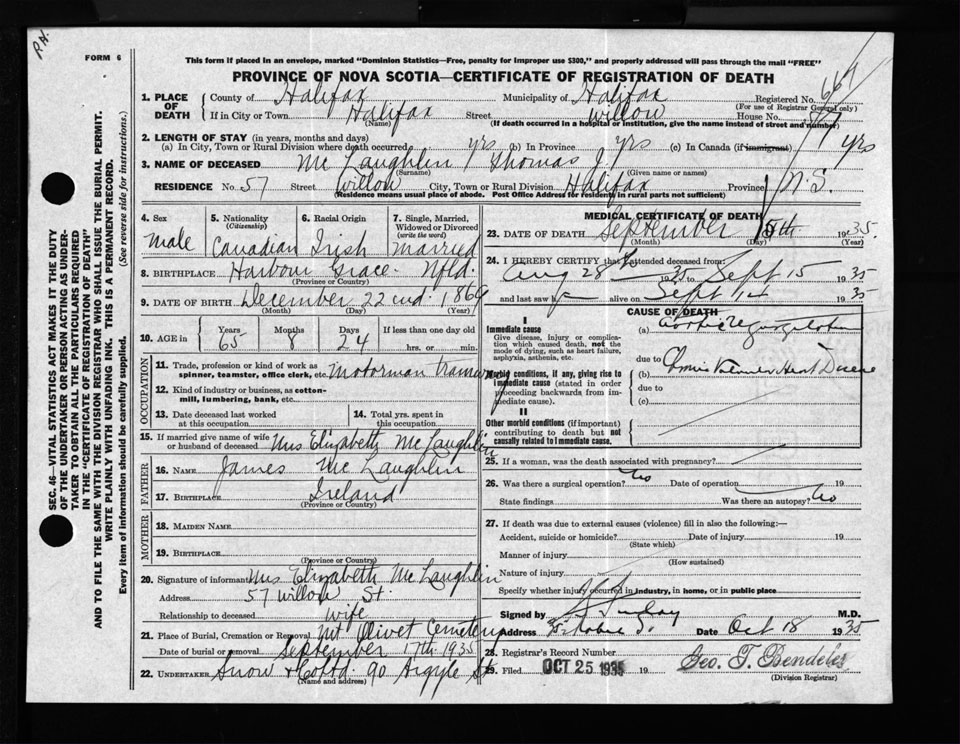 P.H.
FORM 6
This form if placed in an envelope, marked "Dominion Statistics—Free, penalty for improper use $300," and properly addressed will pass through the mail "FREE"
PROVINCE OF NOVA SCOTIA—CERTIFICATE OF REGISTRATION OF DEATH
1. PLACE OF DEATH
County of Halifax Municipality of Halifax Registered No. 667
(For use of Registrar General only)
If in City or Town Halifax Street Willow House No. 57
(Name) (If death occurred in a hospital or institution, give the name instead of street and number)
2. LENGTH OF STAY (in years, months and days)
(a) In City, Town or Rural Division where death occurred yrs (b) In Province yrs (c) In Canada (if immigrant) yrs
3. NAME OF DECEASED Mc Laughlin Thomas J.
(Surname) (Given name or names)
RESIDENCE No. 57 Street Willow City, Town or Rural Division Halifax Province N.S.
(Residence means usual place of abode. Post Office Address for residents in rural parts not sufficient)
4. Sex
Male
5. Nationality
(Citizenship)
Canadian
6. Racial Origin
Irish
7. Single, Married, Widowed or Divorced
(write the word)
Married
8. BIRTHPLACE Harbour Grace. Nfld.
(Province or Country)
9. DATE OF BIRTH December 22nd. 1869
(Month) (Day) (Year)
10. AGE in
Years Months Days If less than one day old
65 8 24 hrs. or min.
OCCUPATION
11. Trade, profession or kind of work as spinner, teamster, office clerk, etc. Motorman Tramway
12. Kind of industry or business, as cotton-mill, lumbering, bank, etc.
13. Date deceased last worked at this occupation
14. Total yrs. spent in this occupation
15. If married give name of wife or husband of deceased Mrs Elizabeth Mc Laughlin
FATHER
16. NAME James Mc Laughlin
17. BIRTHPLACE Ireland
(Province or Country)
MOTHER
18. MAIDEN NAME
19. BIRTHPLACE
(Province or Country)
20. Signature of informant Mrs Elizabeth Mc Laughlin
Address 57 Willow St.
Relationship to deceased wife
21. Place of Burial, Cremation or Removal Mt Olivet Cemetery
Date of burial or removal September 17th 1935
22. UNDERTAKER Snow & Co Ltd. 90 Argyle St
(Name and address)
MEDICAL CERTIFICATE OF DEATH
23. DATE OF DEATH September 15th 1935.
(Month) (Day) (Year)
24. I HEREBY CERTIFY that I attended deceased from:
Aug 28th 1935 to Sept 15 1935
and last saw h alive on Sept 14 1935
CAUSE OF DEATH
I
Immediate cause
Give disease, injury or complication which caused death, not the mode of dying, such as heart failure, asphyxia, asthenia, etc.
(a) Aortic Regurgitation
due to
Morbid conditions, if any, giving rise to immediate cause (stated in order proceeding backwards from immediate cause).
(b) Valvular Heart Disease
due to
(c)
II
Other morbid conditions (if important) contributing to death but not causally related to immediate cause.
25. If a woman, was the death associated with pregnancy?
26. Was there a surgical operation? No Date of operation 19
State findings Was there an autopsy? No
27. If death was due to external causes (violence) fill in also the following:—
Accident, suicide or homicide? Date of injury 19
(State which)
Manner of injury
(How sustained)
Nature of injury
Specify whether injury occurred in industry, in home, or in public place
Signed by M.D.
Address Date Oct 18 1935
28. Registrar's Record Number
29. Filed OCT 25 1935 19 Geo. T. Bendeler
(Division Registrar)
SEC. 46—VITAL STATISTICS ACT MAKES IT THE DUTY
OF THE UNDERTAKER OR PERSON ACTING AS UNDER-
TAKER TO OBTAIN ALL THE PARTICULARS REQUIRED
IN THE "CERTIFICATE OF REGISTRATION OF DEATH"
AND TO FILE THE SAME WITH THE DIVISION REGISTRAR WHO SHALL ISSUE THE BURIAL PERMIT.
WRITE PLAINLY WITH UNFADING INK. THIS IS A PERMANENT RECORD.
Every item of information should be carefully supplied. (See reverse side for instructions.)